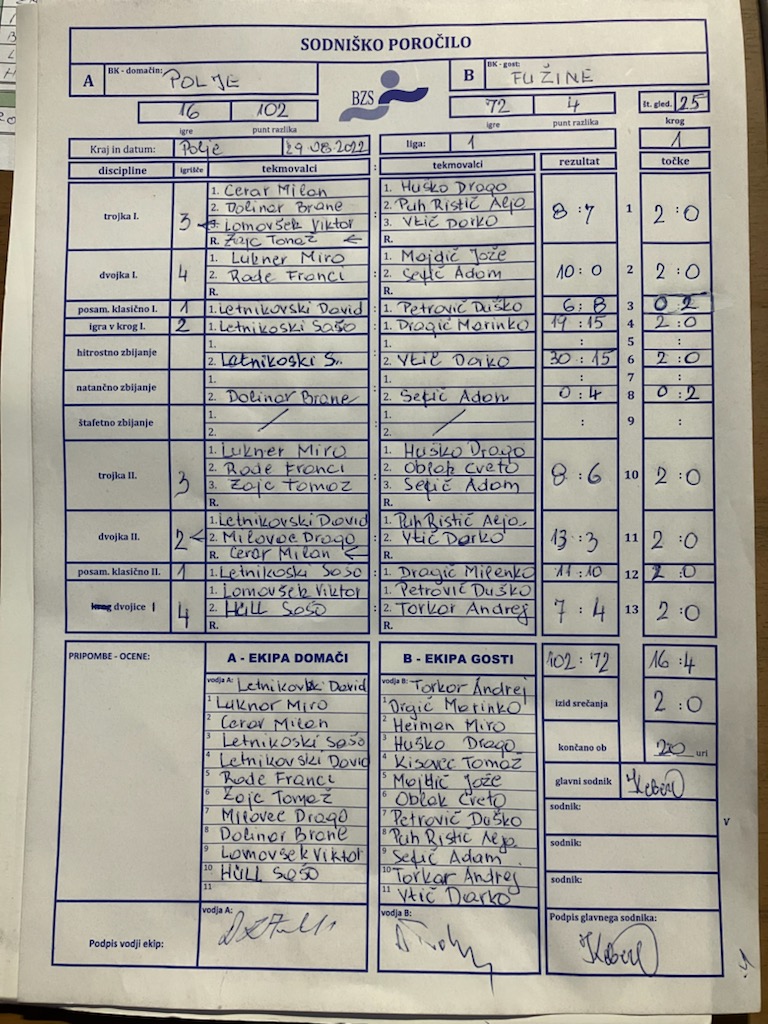 SODNIŠKO POROČILO
A BK - domačin: POLJE BZS B BK - gost: FUŽINE
16 102 72 4 št. gled. 25
igre punt razlika igre punt razlika krog
Kraj in datum: Polje 29.08.2022 liga: 1 1
discipline igrišče tekmovalci : tekmovalci rezultat točke
trojka I. 3 1. Cerar Milan 1. Huško Drago 8 : 7 1 2 : 0
2. Dolinar Brane : 2. Puh Ristič Aljo
3. Lomovšek Viktor 3. Vtič Darko
R. Zajc Tomaž R.
dvojka I. 4 1. Lukner Miro 1. Mojdič Jože 10 : 0 2 2 : 0
2. Rade Franci : 2. Sefič Adam
R. R.
posam. klasično I. 1 1. Letnikovski David : 1. Petrovič Duško 6 : 8 3 0 : 2
igra v krog I. 2 1. Letnikoski Sašo : 1. Dragič Marinko 19 : 15 4 2 : 0
hitrostno zbijanje 1. 1. : 5 :
2. Letnikoski S. : 2. Vtič Darko 30 : 15 6 2 : 0
natančno zbijanje 1. 1. : 7 :
2. Dolinar Brane : 2. Sefič Adam 0 : 4 8 0 : 2
štafetno zbijanje 1. : 1. : 9 :
2. 2.
trojka II. 3 1. Lukner Miro 1. Huško Drago 8 : 6 10 2 : 0
2. Rade Franci : 2. Oblak Cveto
3. Zajc Tomaž 3. Sefič Adam
R. R.
dvojka II. 2 1. Letnikovski David 1. Puh Ristič Aljo 13 : 3 11 2 : 0
2. Milovac Drago : 2. Vtič Darko
R. Cerar Milan R.
posam. klasično II. 1 1. Letnikoski Sašo : 1. Dragič Milenko 11 : 10 12 2 : 0
krog dvojice 1 4 1. Lomovšek Viktor 1. Petrovič Duško 7 : 4 13 2 : 0
2. Hüll Sašo : 2. Torkar Andrej
R. R.
PRIPOMBE - OCENE: A - EKIPA DOMAČI B - EKIPA GOSTI 102 : 72 16 : 4
vodja A: Letnikovski David vodja B: Torkar Andrej
1 Luknar Miro 1 Drgič Marinko izid srečanja 2 : 0
2 Cerar Milan 2 Heiman Miro
3 Letnikoski Sašo 3 Huško Drago končano ob 20 uri
4 Letnikovski David 4 Kisovec Tomaž
5 Rade Franci 5 Mojdič Jože glavni sodnik
6 Zajc Tomaž 6 Oblak Cveto
7 Milovec Drago 7 Petrovič Duško sodnik:
8 Dolinar Brane 8 Puh Ristič Aljo
9 Lomovšek Viktor 9 Sefič Adam sodnik:
10 Hüll Sašo 10 Torkar Andrej sodnik:
11 11 Vtič Darko
Podpis vodji ekip: vodja A: vodja B: Podpis glavnega sodnika: